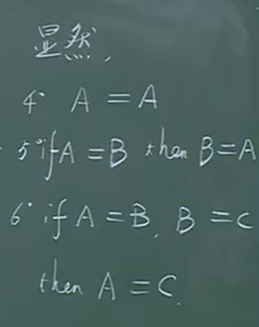 显然,
4° A = A
5° if A = B then B = A
6° if A = B, B = C
then A = C.